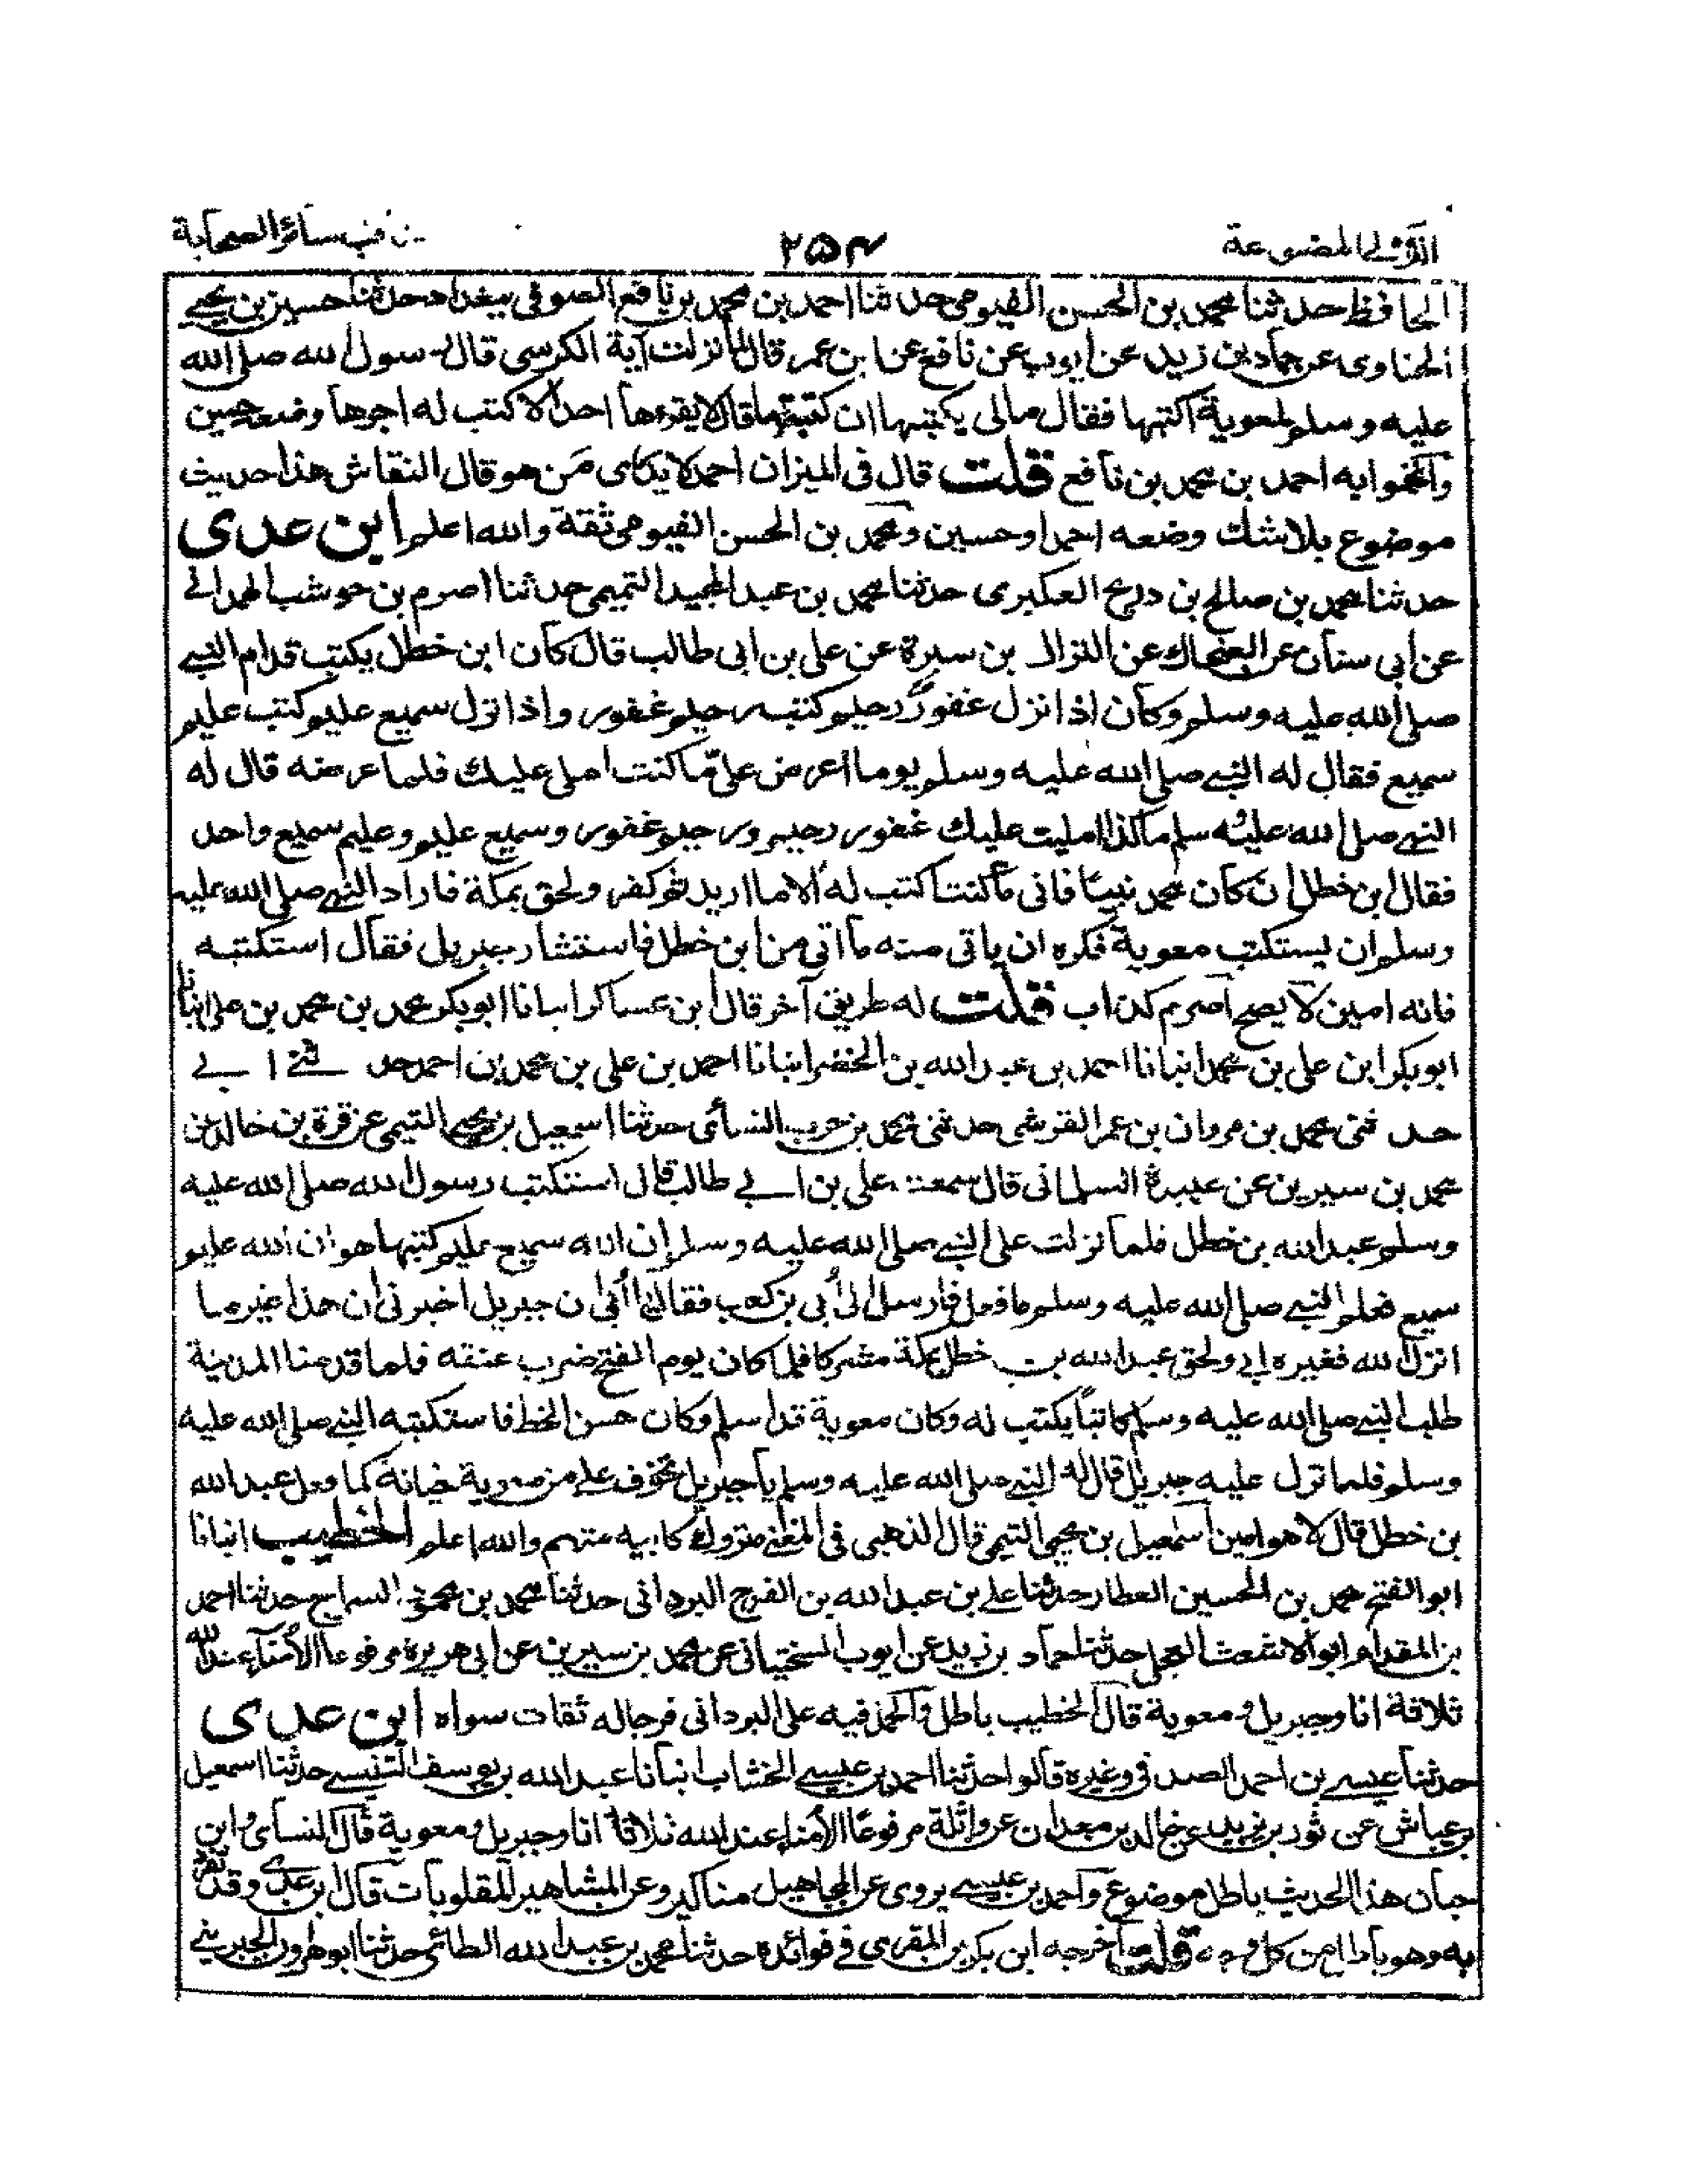 اللآلى المصنوعة
٢٥٤
مناقب سائر الصحابة
الحافظ حدثنا محمد بن الحسن الفيومى حدثنا احمد بن محمد بن نافع الصوفى ببغداد حدثنا حسين بن يحيى
الحناوى عن حماد بن زيد عن ايوب عن نافع عن ابن عمر قال لما نزلت آية الكرسى قال رسول الله صلى الله
عليه وسلم لمعوية اكتبها فقال مالى يكتبها ان كتبتها قال لا يقرءها احد الا كتب له اجرها وضعه حسين
وانما هو ابه احمد بن محمد بن نافع قلت قال فى الميزان احمد لا يدكاى من هو قال النقاش هذا حديث
موضوع بلاشك وضعه احمد او حسين ومحمد بن الحسن الفيومى ثقة والله اعلم ابن عدى
حدثنا محمد بن صالح بن ذريح العكبرى حدثنا محمد بن عبد المجيد التميمى حدثنا اصرم بن حوشب الهمدانى
عن ابى سنان عن الضحاك عن النزال بن سبرة عن على بن ابى طالب قال كان ابن خطل يكتب قدام النبى
صلى الله عليه وسلم وكان اذا نزل غفور رحيم كتب رحيم غفور واذا نزل سميع عليم كتب عليم
سميع فقال له النبى صلى الله عليه وسلم يوما اعرض على ما كنت املى عليك فلما عرضه قال له
النبى صلى الله عليه وسلم ما كذا امليت عليك غفور رحيم ورحيم غفور وسميع عليم وعليم سميع واحد
فقال ابن خطل ان كان محمد نبيا فانى ما كنت اكتب له الا ما اريد ثم كفر ولحق بمكة فاراد النبى صلى الله عليه
وسلم ان يستكتب معوية فكره ان ياتى منه ما اتى من ابن خطل فاستشار جبريل فقال استكتبه
فانه امين لا يصح اصرم كذاب قلت له طريق آخر قال ابن عساكر انبانا ابو بكر محمد بن محمد بن على انبانا
ابو بكر ابن على بن محمد انبانا احمد بن عبد الله بن الخضر انبانا احمد بن على بن محمد بن احمد حدثنى ابى
حدثنى محمد بن مروان بن عمر القرشى حدثنى محمد بن حرب النسائى حدثنا اسمعيل بن يحيى التيمى عن قرة بن خالد عن
محمد بن سيرين عن عبيدة السلمانى قال سمعت على بن ابى طالب قال استكتب رسول الله صلى الله عليه
وسلم عبد الله بن خطل فلما نزلت على النبى صلى الله عليه وسلم ان الله سميع عليم كتبها هو ان الله عليم
سميع فعلم النبى صلى الله عليه وسلم ما فعل فارسل الى أبى بن كعب فقال يا أبى ان جبريل اخبرنى ان هذا غير ما
انزل الله فغيره ابى ولحق عبد الله بن خطل بمكة مشركا فلما كان يوم الفتح ضرب عنقه فلما قدمنا المدينة
طلب النبى صلى الله عليه وسلم كاتبا يكتب له وكان معوية قد اسلم وكان حسن الخط فاستكتبه النبى صلى الله عليه
وسلم فلما نزل عليه جبريل قال له النبى صلى الله عليه وسلم يا جبريل تخوف على من معوية خيانة كما فعل عبد الله
بن خطل قال لا هو امين اسمعيل بن يحيى التيمى قال الذهبى فى المغنى متروك كابيه متهم والله اعلم الخطيب انبانا
ابو الفتح محمد بن الحسين العطار حدثنا على بن عبد الله بن الفرج البردانى حدثنا محمد بن محمود السراج حدثنا احمد
بن المقدام ابو الاشعث العجلى حدثنا حماد بن زيد عن ايوب السختيانى عن محمد بن سيرين عن ابى هريرة مرفوعا الأمناء عند الله
ثلاثة انا وجبريل ومعوية قال الخطيب باطل والحمل فيه على البردانى فرجاله ثقات سواه ابن عدى
حدثنا عيسى بن احمد الصدفى وغيره قالوا حدثنا احمد بن عيسى الخشاب انبانا عبد الله بن يوسف التنيسى حدثنا اسمعيل
بن عياش عن ثور بن يزيد عن خالد بن معدان عن واثلة مرفوعا الأمناء عند الله ثلاثة انا وجبريل ومعوية قال النسائى وابن
حبان هذا الحديث باطل موضوع واحمد بن عيسى يروى عن المجاهيل مناكير وعن المشاهير المقلوبات قال ابن عدى وقد تفرد
به وهو باطل من كل وجه قلت اخرجه ابن بكر بن المقرى فى فوائده حدثنا محمد بن عبد الله الطائى حدثنا ابو هرون الجبرينى